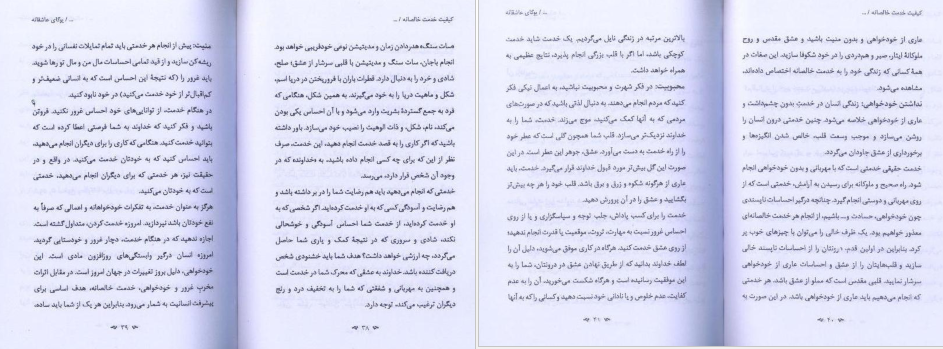 کیفیت خدمت خالصانه / ...
«سات سنگ» هدردادن زمان و مدیتیشن نوعی خودفریبی خواهد بود.
انجام باجان، سات سنگ و مدیتیشن با قلبی سرشار از عشق؛ صلح،
شادی و خرد را به دنبال دارد. قطرات باران با فروریختن در دریا اسم،
شکل و ماهیت دریا را به خود می‌گیرند. به همین شکل، هنگامی که
فرد به جمع گستردهٔ بشریت وارد می‌شود و با آن احساس یکی بودن
می‌کند، نام، شکل، و ذات الوهیت را نصیب خود می‌سازد. باور داشته
باشید که اگر کاری را به قصد خدمت انجام دهید، این خدمت، صرف
نظر از این که برای چه کسی انجام داده باشید، به «خداوند»ه که در
وجود آن شخص قرار دارد، می‌رسد.
خدمتی که انجام می‌دهید باید هم رضایت شما را در بر داشته باشد و
هم رضایت و آسودگی کسی که به او خدمت کرده‌اید. اگر شخصی که به
او خدمت کرده‌اید، از خدمت شما احساس آسودگی و خوشحالی
نکند، شادی و سروری که در نتیجهٔ کمک و یاری شما حاصل
می‌گردد، چه ارزشی خواهد داشت؟ هدف شما باید خشنودی شخص
دریافت کننده باشد. خداوند به عشقی که محرک شما در خدمت است
و همچنین به مهربانی و شفقتی که شما را به تخفیف درد و رنج
دیگران ترغیب می‌کند، توجه دارد.
۳۸
... / یوگای عاشقانه
منیت: پیش از انجام هر خدمتی باید تمام تمایلات نفسانی را در خود
ریشه‌کن سازید و از قید تمامی احساسات مال من و مال تو رها شوید.
باید غرور را (که نتیجهٔ این احساس است که به انسانی ضعیف‌تر و
کم‌اقبال‌تر از خود خدمت می‌کنید) در خود نابود کنید.
در هنگام خدمت، از توانایی‌های خود احساس غرور نکنید. فروتن
باشید و فکر کنید که خداوند به شما فرصتی اعطا کرده است که
بتوانید خدمت کنید. هنگامی که کاری را برای دیگران انجام می‌دهید،
باید احساس کنید که به خودتان خدمت می‌کنید. در واقع و در
حقیقت نیز، هر خدمتی که برای دیگران انجام می‌دهید، خدمتی
است که به خودتان می‌کنید.
هرگز به عنوان خدمت، به تفکرات خودخواهانه و اعمالی که صرفاً به
نفع خودتان باشد نپردازید. امروزه خدمت کردن، متداول گشته است.
اجازه ندهید که در هنگام خدمت، دچار غرور و خودستایی گردید.
امروزه، انسان درگیر وابستگی‌های روزافزون مادی است. این
خودخواهی، دلیل بروز تغییرات در جهان امروز است. در مقابل اثرات
مخرب غرور و خودخواهی، خدمت خالصانه، هدف اساسی برای
پیشرفت انسانیت به شمار می‌رود. بنابراین هر یک از شما باید ساده،
۳۹
کیفیت خدمت خالصانه / ...
عاری از خودخواهی و بدون منیت باشید و عشق مقدس و روح
ملوکانهٔ ایثار، صبر و همدردی را در خود شکوفا سازید. این صفات در
همهٔ کسانی که زندگی خود را به خدمت خالصانه اختصاص داده‌اند،
مشاهده می‌شود.
نداشتن خودخواهی: زندگی انسان در خدمتِ بدون چشم‌داشت و
خودخواهی خلاصه می‌شود. چنین خدمتی درون انسان را
روشن می‌سازد و موجب وسعت قلب، خالص شدن انگیزه‌ها و
برخورداری از عشق جاودان می‌گردد.
خدمت حقیقی خدمتی است که با مهربانی و بدون خودخواهی انجام
شود. راه صحیح و ملوکانه برای رسیدن به آرامش، خدمتی است که از
روی مهربانی و دوستی انجام گیرد. چنانچه درگیر احساسات ناپسندی
چون خودخواهی، حسادت و... باشیم، از انجام هر خدمت خالصانه‌ای
معذور خواهیم بود. یک ظرف خالی را می‌توان با چیزهای خوب پر
کرد. بنابراین در اولین قدم، درونتان را از احساسات ناپسند خالی
سازید و قلب‌هایتان را از عشق و احساسات عاری از خودخواهی
سرشار نمایید. قلبی مقدس است که مملو از عشق باشد. هر خدمتی
که انجام می‌دهیم باید عاری از خودخواهی باشد. در این صورت به
۴۰
... / یوگای عاشقانه
بالاترین مرتبه در زندگی نایل می‌گردیم. یک خدمت شاید خدمت
کوچکی باشد، اما اگر با قلب بزرگی انجام پذیرد، نتایج عظیمی به
همراه خواهد داشت.
محبوبیت: در فکر شهرت و محبوبیت نباشید، به اعمال نیکی فکر
کنید که مردم انجام می‌دهند. به دنبال لذتی باشید که در صورت‌های
مردمی که به آنها کمک می‌کنید، موج می‌زند. خدمت، شما را به
خداوند نزدیک‌تر می‌سازد. قلب شما همچون گلی است که عطر خود
را از راه خدمت به دست می‌آورد. عشق، جوهر این عطر است. در این
صورت این گل بیش‌تر مورد قبول خداوند قرار می‌گیرد. خدمت، باید
عاری از هرگونه شکوه و زرق و برق باشد. قلب خود را هر چه بیش‌تر
بگشایید و عشق را در آن پرورش دهید.
خدمت را برای کسب پاداش، جلب توجه و سپاسگزاری و یا از روی
احساس غرور نسبت به مهارت، ثروت، موقعیت یا قدرت انجام ندهید؛
از روی عشق خدمت کنید. هرگاه در کاری موفق می‌شوید، دلیل آن را
لطف خداوند بدانید که از طریق نهادن عشق در درونتان، شما را به
این موفقیت رسانیده است و هرگاه شکست می‌خورید، آن را به عدم
کفایت، عدم خلوص و یا نادانی خود نسبت دهید و کسانی را که به آنها
۴۱